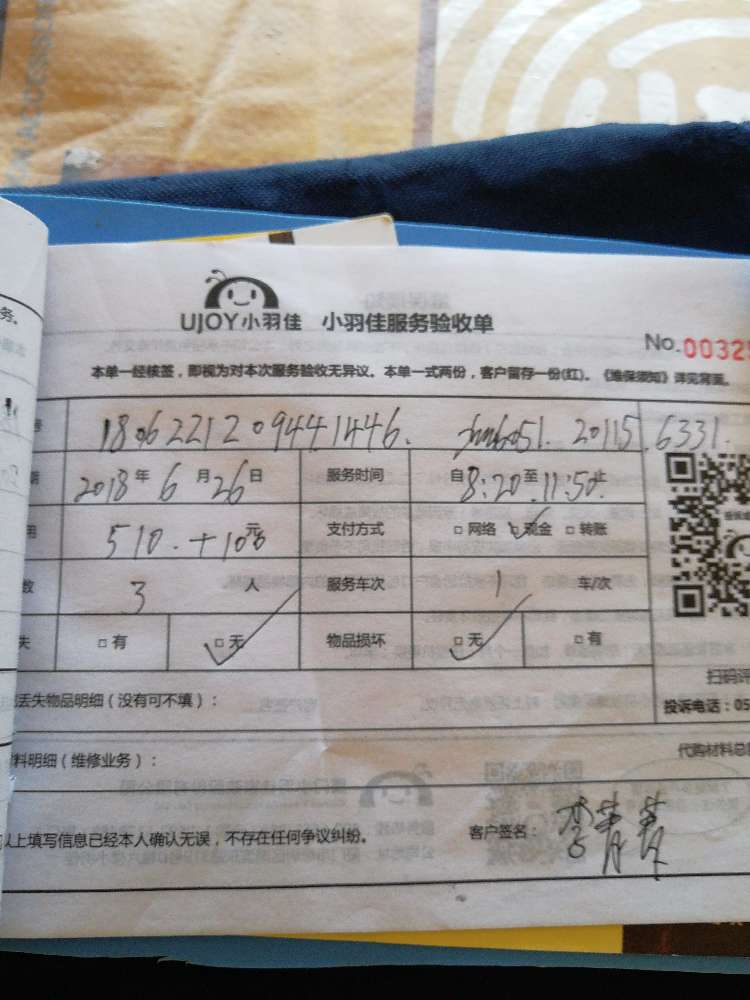 UJOY小羽佳 小羽佳服务验收单
No.00325
本单一经核签，即视为对本次服务验收无异议。本单一式两份，客户留存一份(红)。《维保须知》详见背面。
务。
1806221209441446. 20115.6331.
期 2018年6月26日 服务时间 自8:20至11:50止
用 510.+10元 支付方式 □网络 □现金 □转账
数 3人 服务车次 1 车/次
失 □有 □无 物品损坏 □无 □有
扫码评
丢失物品明细（没有可不填）：
投诉电话：05
料明细（维修业务）：
代购材料总
以上填写信息已经本人确认无误，不存在任何争议纠纷。 客户签名：李菁菁